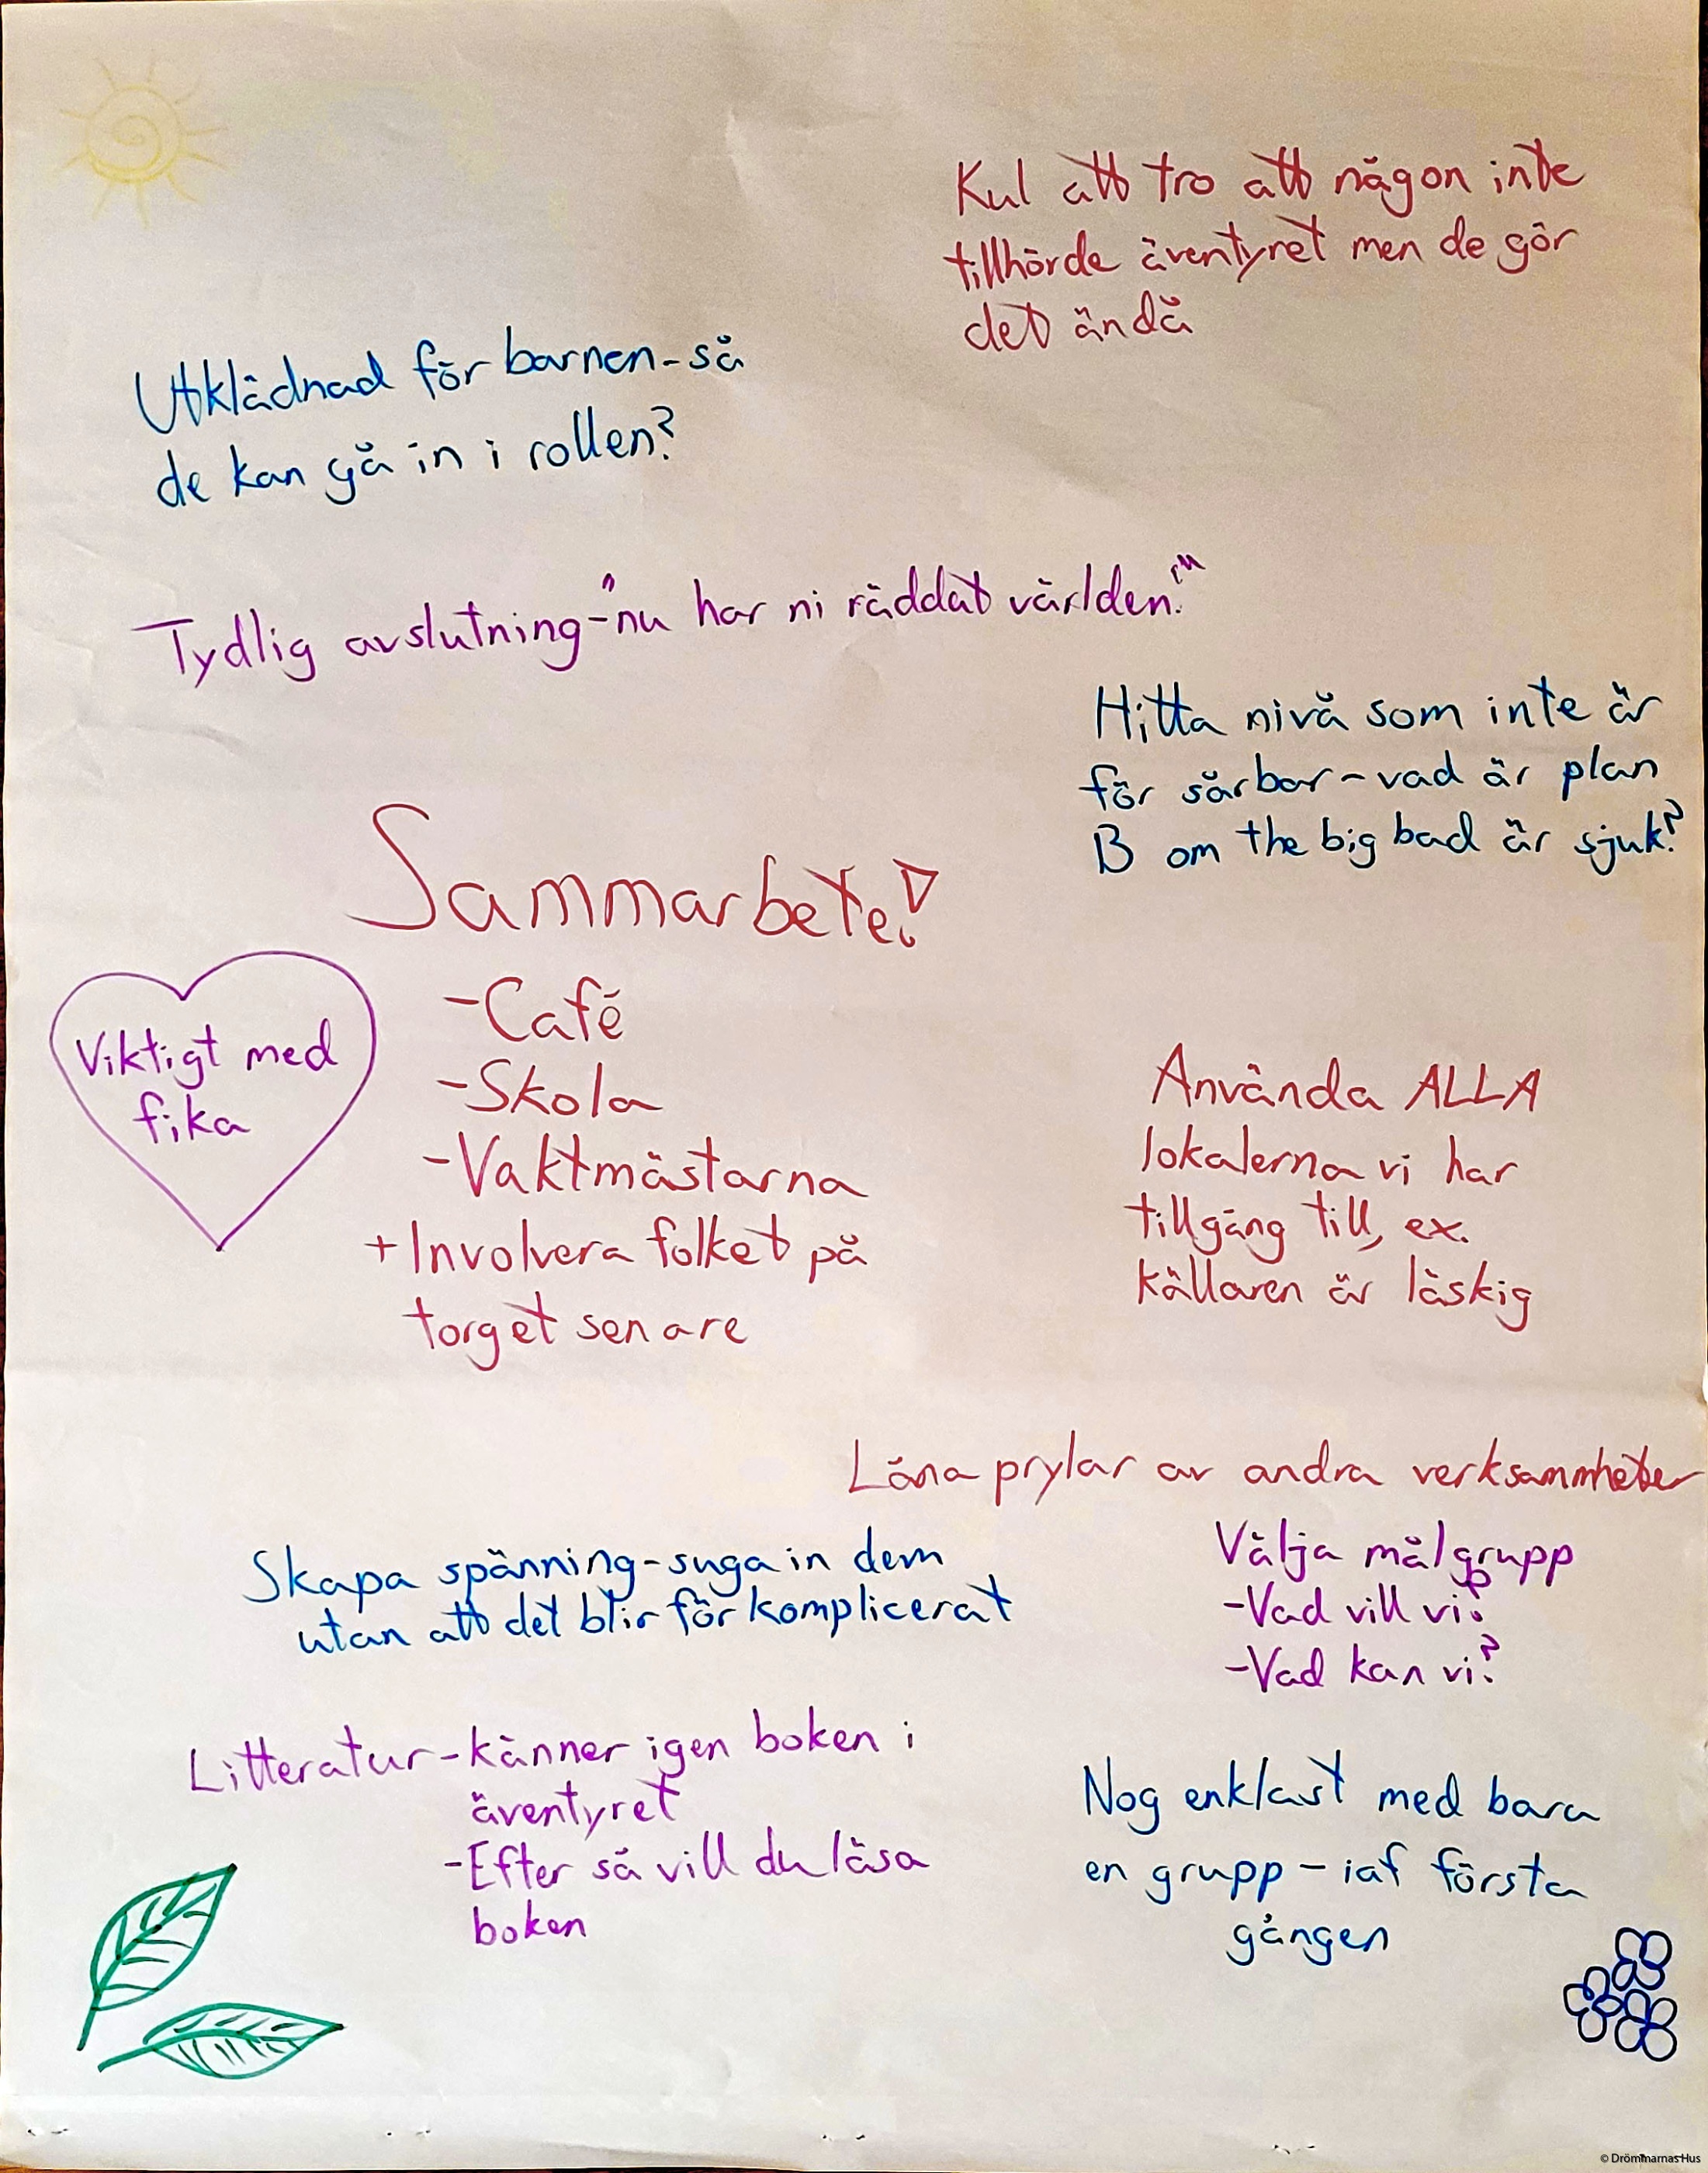 Kul att tro att någon inte
tillhörde äventyret men de gör
det ändå
Utklädnad för barnen - så
de kan gå in i rollen?
Tydlig avslutning - "nu har ni räddat världen!"
Hitta nivå som inte är
för sårbar - vad är plan
B om the big bad är sjuk?
Sammarbete!
- Café
- Skola
- Vaktmästarna
+ Involvera folket på
torget senare
Viktigt med
fika
Använda ALLA
lokalerna vi har
tillgång till, ex.
källaren är läskig
Låna prylar av andra verksammheter
Skapa spänning - suga in dem
utan att det blir för komplicerat
Välja målgrupp
- Vad vill vi?
- Vad kan vi?
Litteratur - känner igen boken i
äventyret
- Efter så vill du läsa
boken
Nog enklast med bara
en grupp - iaf första
gången
© Drömmarnas Hus